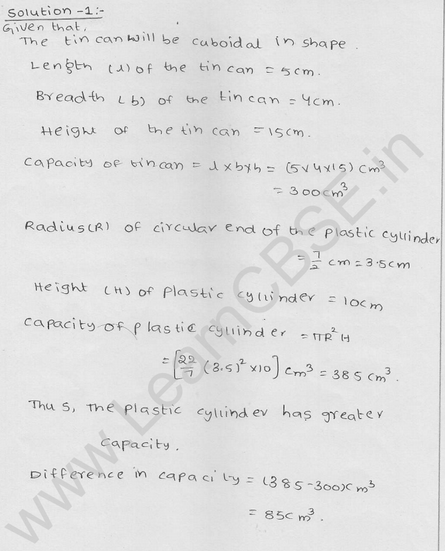 Solution -1:-
Given that,
The tin can will be cuboidal in shape.
Length (l) of the tin can = 5cm.
Breadth (b) of the tin can = 4cm.
Height of the tin can = 15cm.
Capacity of tin can = l x b x h = (5 x 4 x 15) cm³
= 300cm³
Radius(R) of circular end of the plastic cylinder
= 7/2 cm = 3.5cm
Height (H) of plastic cylinder = 10cm
Capacity of plastic cylinder = πR²H
= [22/7 (3.5)² x10] cm³ = 385 cm³.
Thus, The plastic cylinder has greater
capacity.
Difference in capacity = (385-300)cm³
= 85cm³.
www.LearnCBSE.in